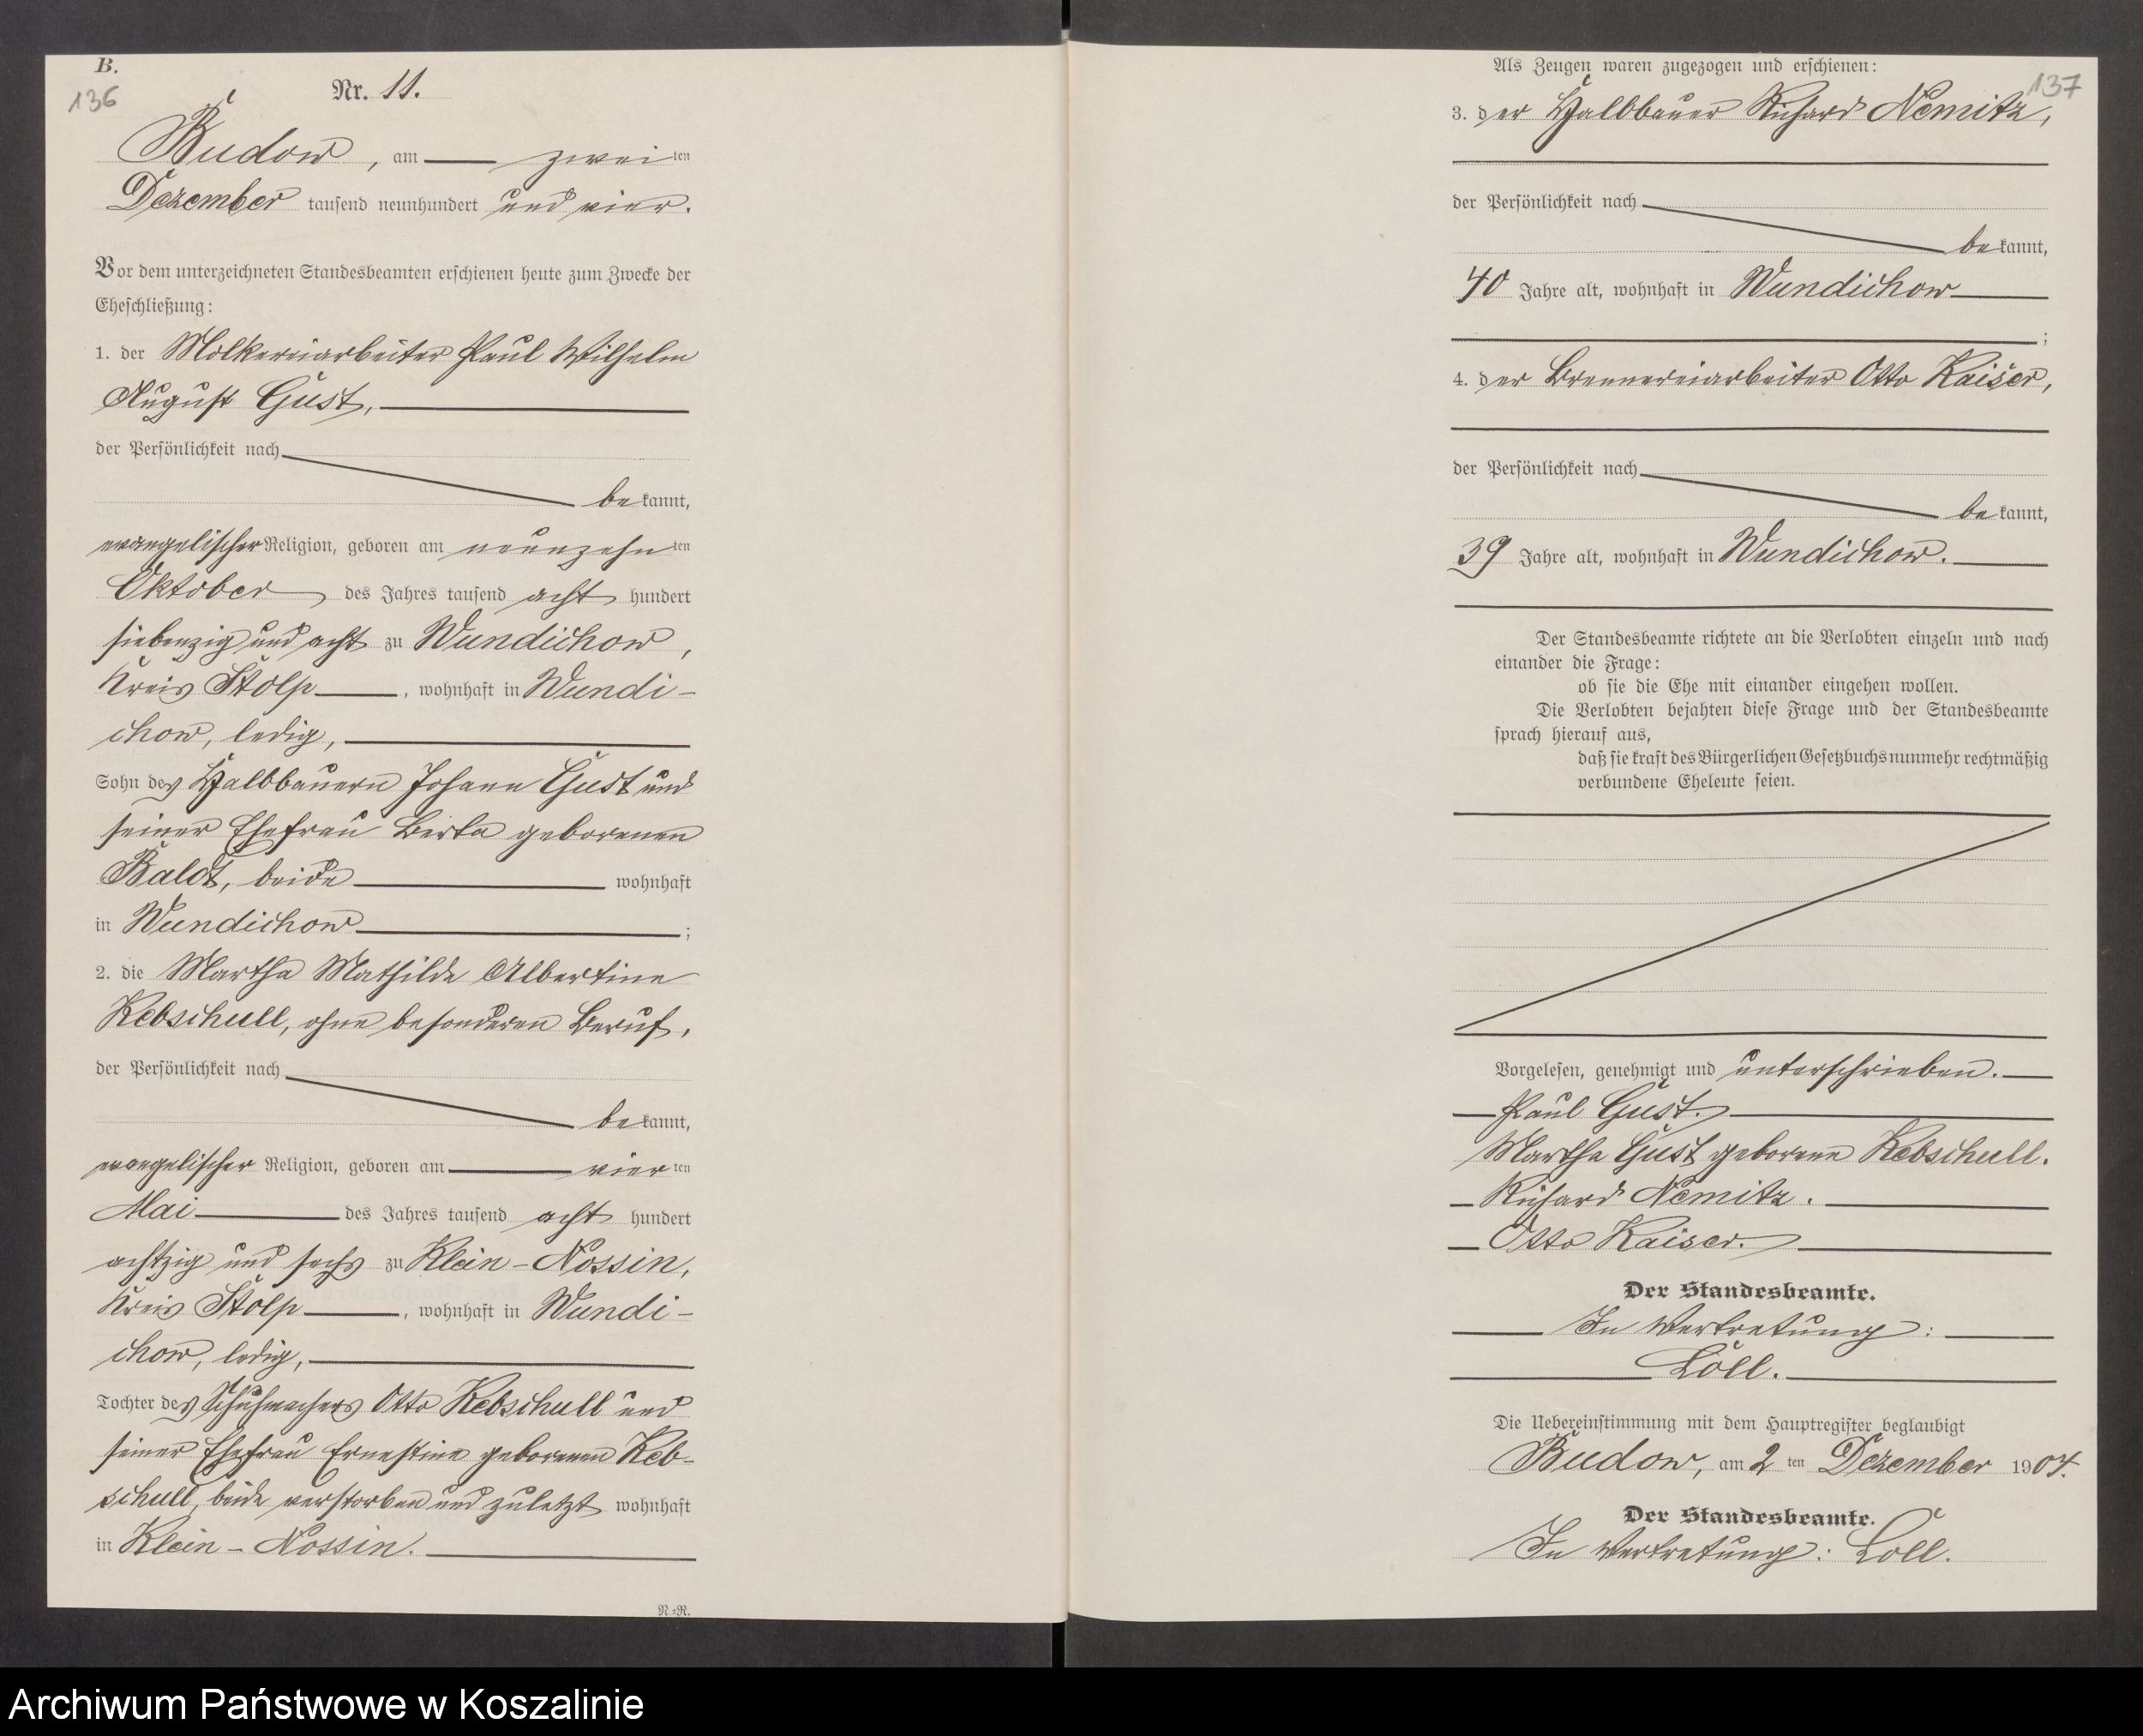 B.
136
Nr. 11.
Budow, am zweiten
Dezember tausend neunhundert und vier.
Vor dem unterzeichneten Standesbeamten erschienen heute zum Zwecke der
Eheschließung:
1. der Molkereiarbeiter Paul Wilhelm
August Gust,
der Persönlichkeit nach
bekannt,
evangelischer Religion, geboren am neunzehnten
Oktober des Jahres tausend acht hundert
siebenzig und acht zu Wundichow,
Kreis Stolp, wohnhaft in Wundi-
chow, ledig,
Sohn des Halbbauern Johann Gust und
seiner Ehefrau Berta geborenen
Baldt, beide wohnhaft
in Wundichow;
2. die Martha Mathilde Albertine
Kebschull, ohne besonderen Beruf,
der Persönlichkeit nach
bekannt,
evangelischer Religion, geboren am vierten
Mai des Jahres tausend acht hundert
achtzig und sechs zu Klein-Nossin,
Kreis Stolp, wohnhaft in Wundi-
chow, ledig,
Tochter des Schuhmachers Otto Kebschull und
seiner Ehefrau Ernestine geborenen Keb-
schull, beide verstorben und zuletzt wohnhaft
in Klein-Nossin.
N.-R.
137
Als Zeugen waren zugezogen und erschienen:
3. der Halbbauer Richard Nemitz,
der Persönlichkeit nach
bekannt,
40 Jahre alt, wohnhaft in Wundichow
;
4. der Brennereiarbeiter Otto Kaiser,
der Persönlichkeit nach
bekannt,
39 Jahre alt, wohnhaft in Wundichow.
Der Standesbeamte richtete an die Verlobten einzeln und nach
einander die Frage:
ob sie die Ehe mit einander eingehen wollen.
Die Verlobten bejahten diese Frage und der Standesbeamte
sprach hierauf aus,
daß sie kraft des Bürgerlichen Gesetzbuchs nunmehr rechtmäßig
verbundene Eheleute seien.
Vorgelesen, genehmigt und unterschrieben.
Paul Gust.
Martha Gust geborene Kebschull.
Richard Nemitz.
Otto Kaiser.
Der Standesbeamte.
In Vertretung:
Löll.
Die Uebereinstimmung mit dem Hauptregister beglaubigt
Budow, am 2ten Dezember 1904.
Der Standesbeamte.
In Vertretung: Löll.
Archiwum Państwowe w Koszalinie